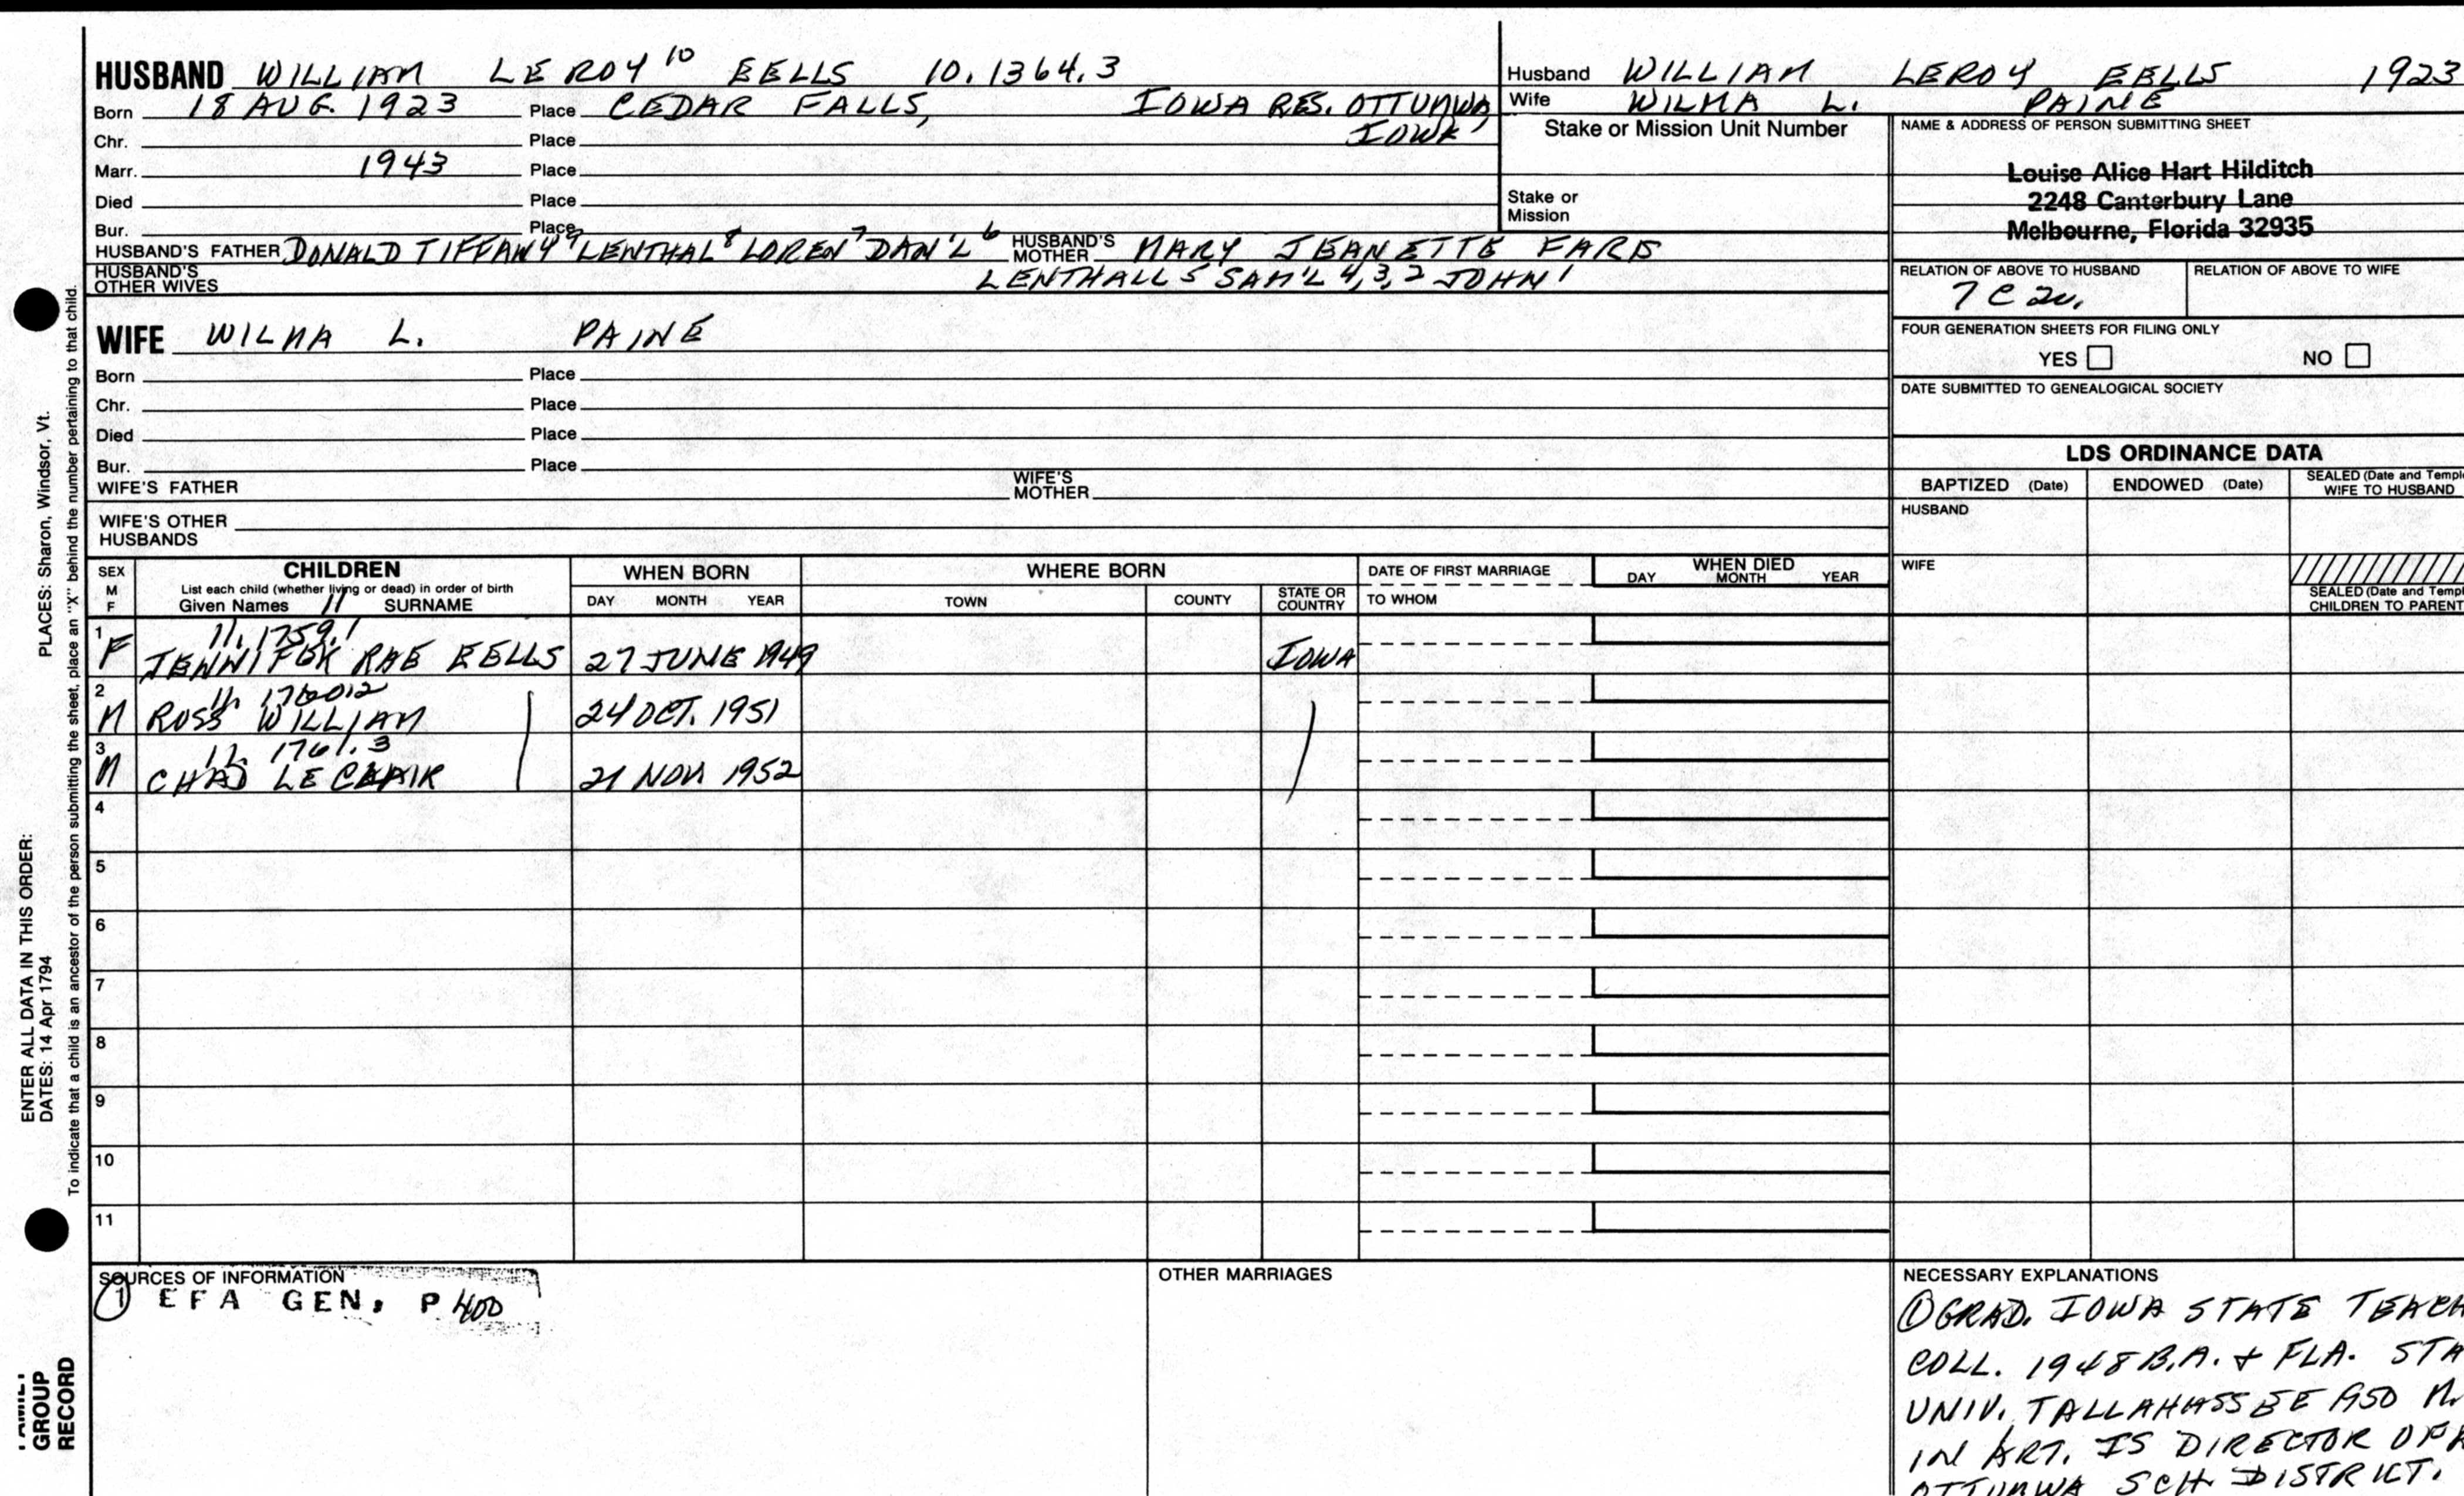 HUSBAND WILLIAM LEROY 10 EELLS 10.1364.3
Born 18 AUG. 1923 Place CEDAR FALLS, IOWA RES. OTTUMWA,
IOWA
Chr. Place
Marr. 1943 Place
Died Place
Bur. Place
HUSBAND'S FATHER DONALD TIFFANY 9 LENTHAL 8 LOREN 7 DAN'L 6 HUSBAND'S MOTHER MARY JEANETTE
HUSBAND'S OTHER WIVES LENTHALL 5 SAM'L 4, 3, 2 JOHN 1
WIFE WILMA L. PAINE
Born Place
Chr. Place
Died Place
Bur. Place
WIFE'S FATHER WIFE'S MOTHER
WIFE'S OTHER HUSBANDS
Husband WILLIAM LEROY EELLS 1923
Wife WILMA L. PAINE
Stake or Mission Unit Number
Stake or
Mission
NAME & ADDRESS OF PERSON SUBMITTING SHEET
Louise Alice Hart Hilditch
2248 Canterbury Lane
Melbourne, Florida 32935
RELATION OF ABOVE TO HUSBAND RELATION OF ABOVE TO WIFE
7C
FOUR GENERATION SHEETS FOR FILING ONLY
YES NO
DATE SUBMITTED TO GENEALOGICAL SOCIETY
LDS ORDINANCE DATA
BAPTIZED (Date) ENDOWED (Date) SEALED (Date and Templ
WIFE TO HUSBAND
HUSBAND
WIFE
SEALED (Date and Templ
CHILDREN TO PARENT
SEX
M
F
CHILDREN
List each child (whether living or dead) in order of birth
Given Names 11 SURNAME
WHEN BORN
DAY MONTH YEAR
WHERE BORN
TOWN COUNTY STATE OR COUNTRY
DATE OF FIRST MARRIAGE
TO WHOM
WHEN DIED
DAY MONTH YEAR
1 11. 1759.1
F JENNIFER RAE EELLS 27 JUNE 1949 IOWA
2 11.
M ROSS WILLIAM 24 OCT. 1951
3 11. 1761.3
M CHAD LECLAIR 21 NOV 1952
4
5
6
7
8
9
10
11
SOURCES OF INFORMATION
1 EFA GEN, P 400
OTHER MARRIAGES
NECESSARY EXPLANATIONS
1 GRAD. IOWA STATE TEACH
COLL. 1948 B.A. + FLA. STA
UNIV. TALLAHASSEE 1950 M.
IN ART. IS DIRECTOR OF
OTTUMWA SCH. DISTRICT.
PLACES: Sharon, Windsor, Vt.
ENTER ALL DATA IN THIS ORDER:
DATES: 14 Apr 1794
To indicate that a child is an ancestor of the person submitting the sheet, place an "X" behind the number pertaining to that child.
FAMILY
GROUP
RECORD